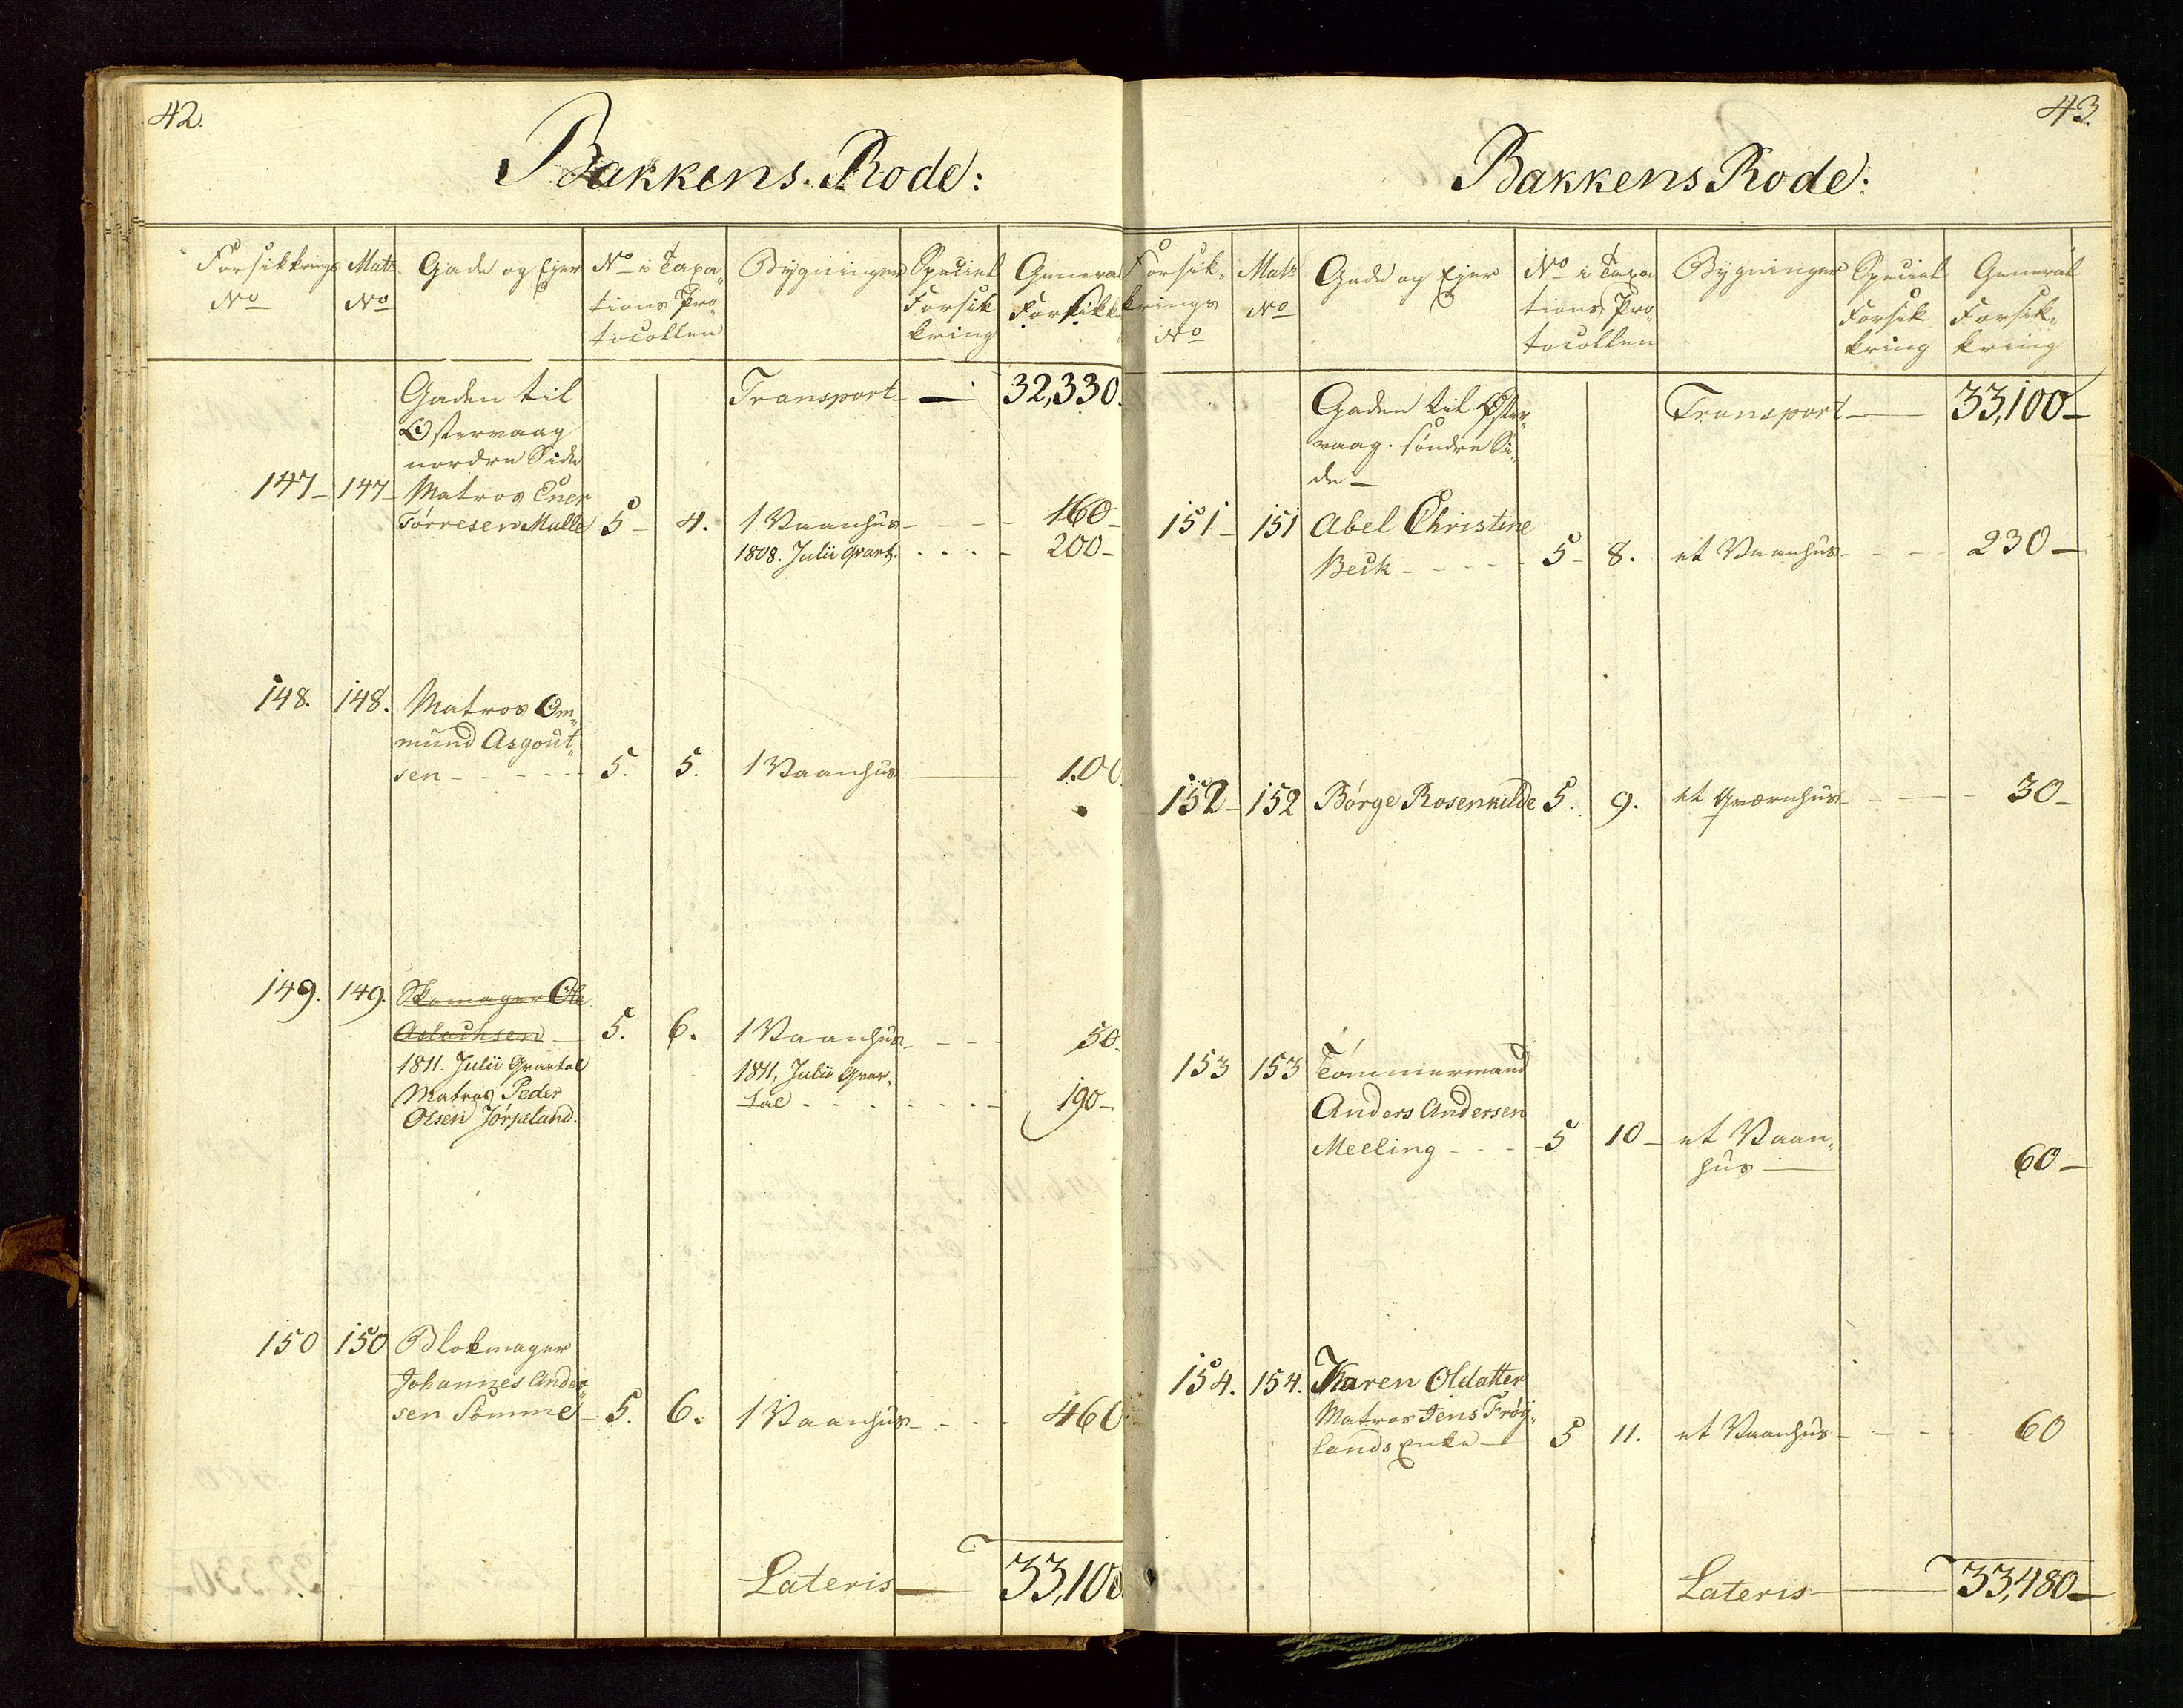 42.
Bakkens Rode:
Forsikkrings No
Matr. No
Gade og Ejer
No i Taxa-
tions Pro-
tocollen
Bygninger
Speciel
Forsik
kring
General
Forsikk
Gaden til
Østervaag
nordre Side
Transport — 32,330.
147 - 147 - Matros Ener
Törresen Malle 5 - 4. 1 Vaanhus - - - - 160 -
1808. Julii Qvart. - - - - 200 -
148. 148. Matros Om-
mund Asgout-
sen - - - - - 5. 5. 1 Vaanhus — 100
149. 149. Skomager Ole
Aslachsen - 5. 6. 1 Vaanhus - - - 50.
1811. Julii Qvartal
Matros Peder
Olsen Jörpeland.
1811, Julii Qvar-
tal - - - - - - 190 -
150 150 Blokmager
Johannes Ander-
sen Sömme - 5. 6. 1 Vaanhus - - - 460
Lateris — 33,100
43.
Bakkens Rode:
Forsik-
krings
No
Matr
No
Gade og Ejer
No i Taxa
tions Pro-
tocollen
Bygninger
Speciel
Forsik
kring
General
Forsik-
kring
Gaden til Øster-
vaag. söndre Si-
de -
Transport — 33,100 -
151 - 151 Abel Christine
Beck - - - - - 5 - 8. et Vaanhus - - - 230 -
152 - 152 Børge Rosenkilde 5. 9. et Qværnhus - - - 30 -
153 153 Tömmermand
Anders Andersen
Meeling - - - 5 10 - et Vaan-
hus — 60 -
154. 154. Karen Oldatter
Matros Jens Frøy-
lands Enke — 5 11. et Vaanhus - - - - 60
Lateris — 33,480 -